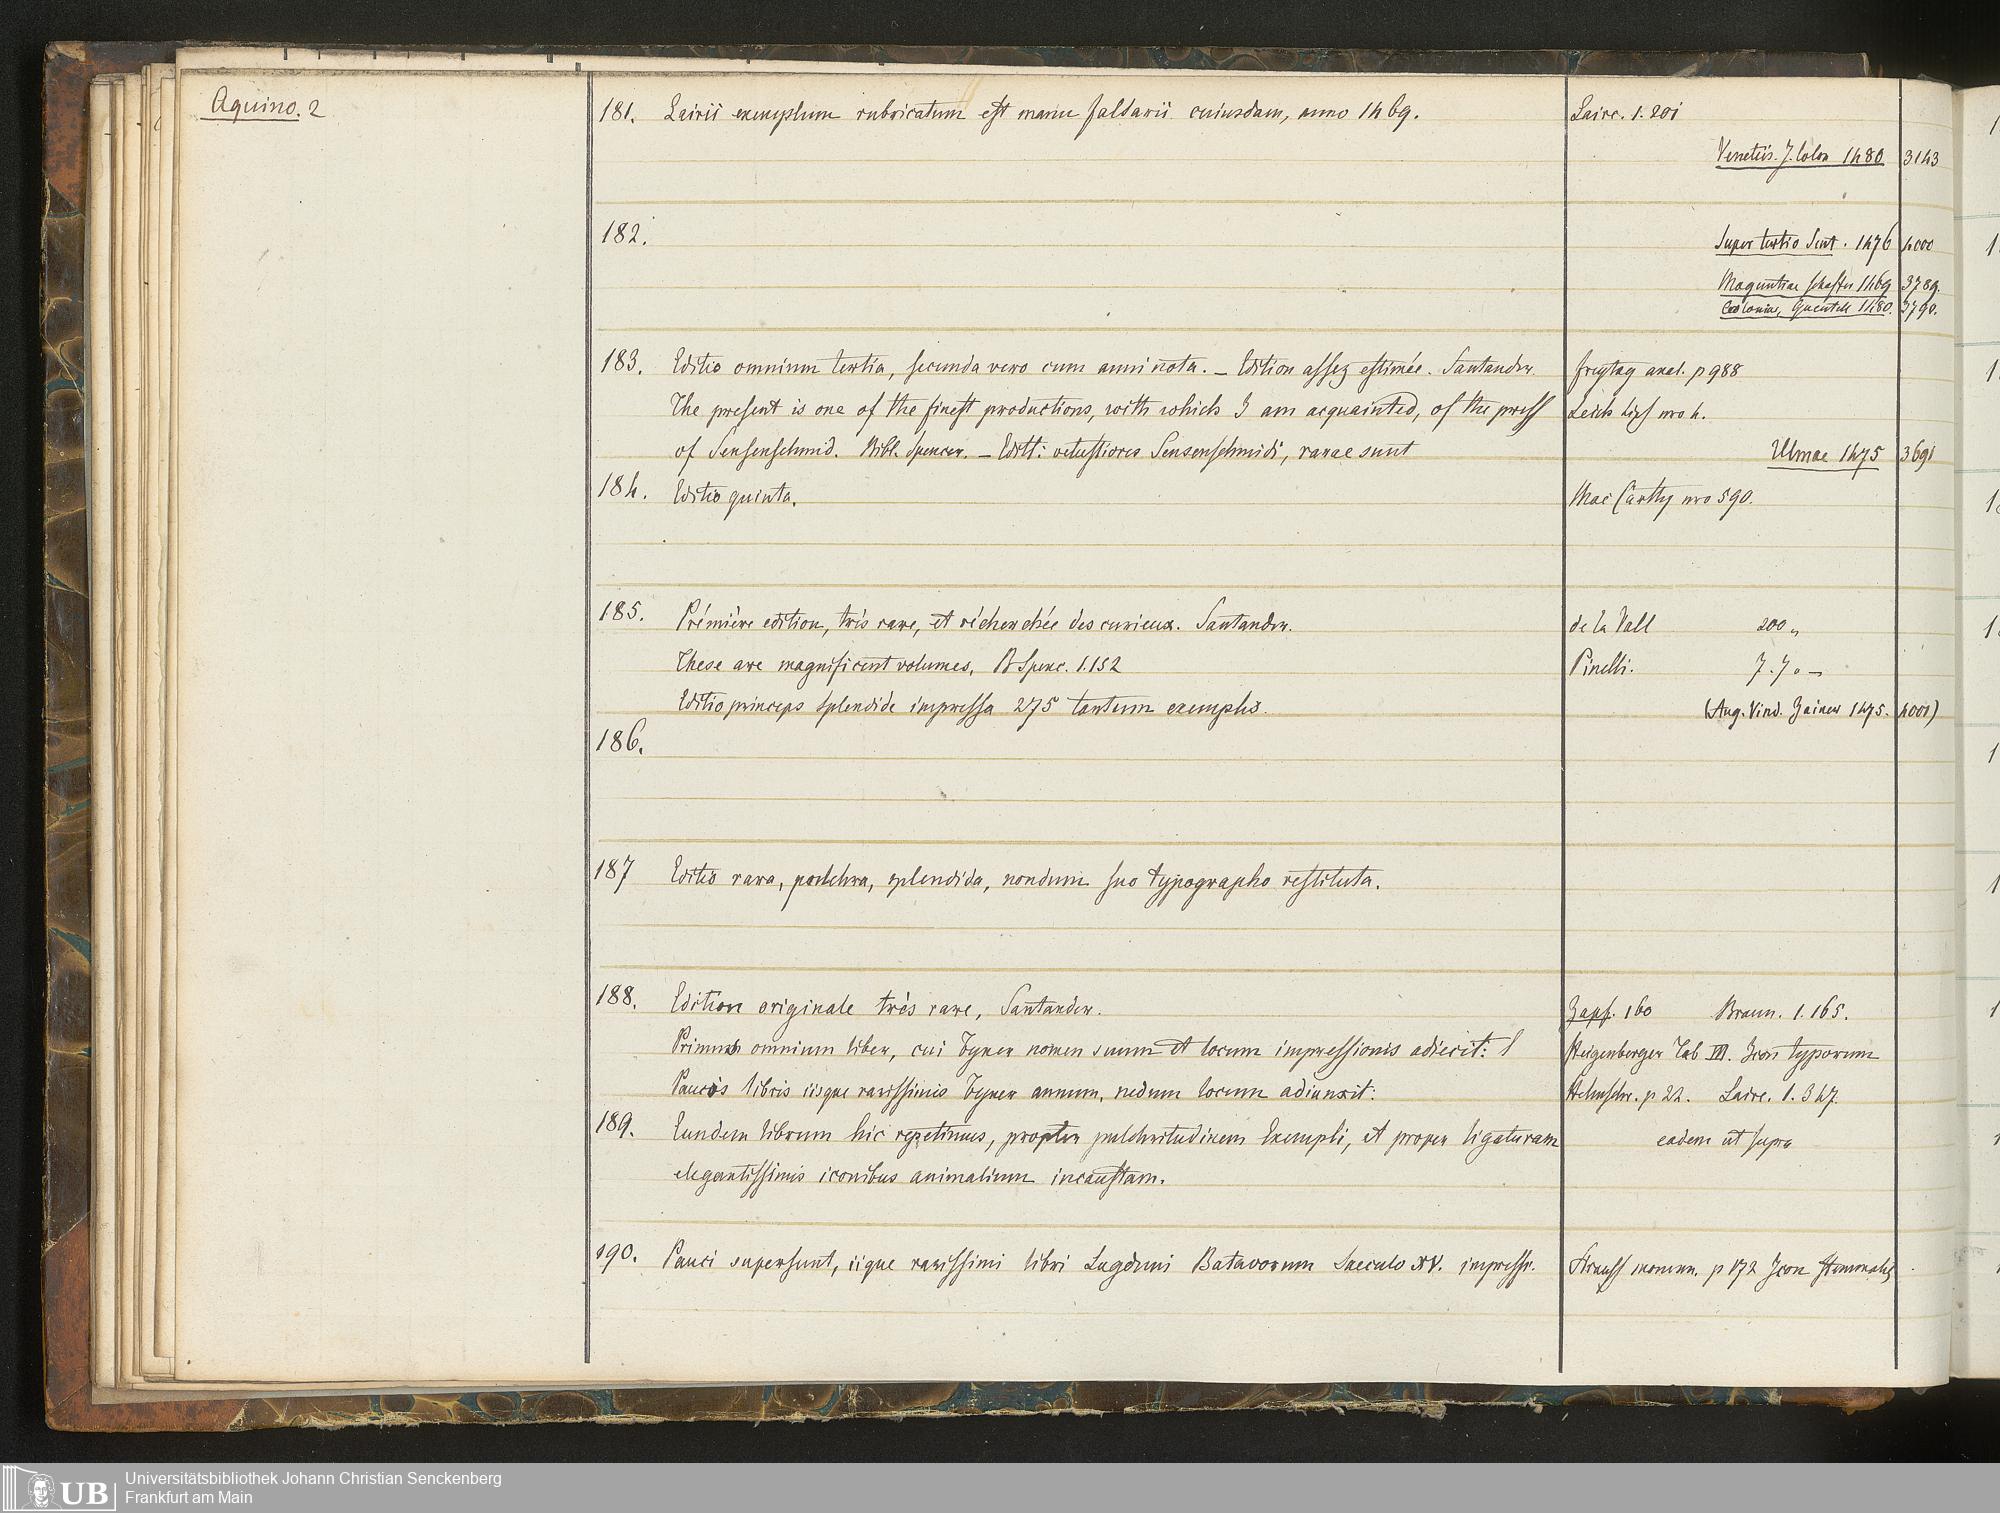 Aquino. 2
181. Lairii exemplum rubricatum est manu Jaldarii cuiusdam, anno 1469.
Laire. 1. 201
Venetiis. J. Colon 1480 3143
182.
Super tertio Sent. 1476 4000
Maguntiae Schoffer 1469 3789.
Coloniae, Quentell 1480. 3790.
183. Editio omnium tertia, secunda vero cum anni nota. — Edition assez estimée. Santander.
Freytag anal. p 988
The present is one of the finest productions, with which I am acquainted, of the press
Leich Lips nro 4.
of Sensenschmid. Bibl. Spencer. — Editt: vetustiores Sensenschmidi, rarae sunt
Ulmae 1475 3691
184. Editio quinta.
Mac Carthy nro 590.
185. Prémière edition, très rare, et récherchée des curieux. Santander.
de la Vall 200 „
These are magnificent volumes, B Spenc. 1.152
Pinelli. 7. 7 0 —
Editio princeps splendide impressa 275 tantum exemplis.
(Aug. Vind. Zainer 1475. 4001)
186.
187 Editio rara, pulchra, splendida, nondum suo typographo restituta.
188. Edition originale très rare, Santander.
Zapf. 160 Braun. 1. 165.
Primus omnium liber, cui Tyner nomen suum et locum impressionis adiecit:
Steigenberger Tab III. Icon typorum
Paucis libris iisque rarissimis Tyner annum, nedum locum adiunxit:
Helmschr. p 22. Laire. 1. 347.
189. Eundem librum hic repetimus, propter pulchritudinem Exempli, et proper ligaturam
eadem ut supra
elegantissimis iconibus animalium incaustam.
190. Pauci supersunt, iique rarissimi libri Lugduni Batavorum Saeculo XV. impressi.
Strauss monum. p 172 Icon
Universitätsbibliothek Johann Christian Senckenberg
Frankfurt am Main
UB